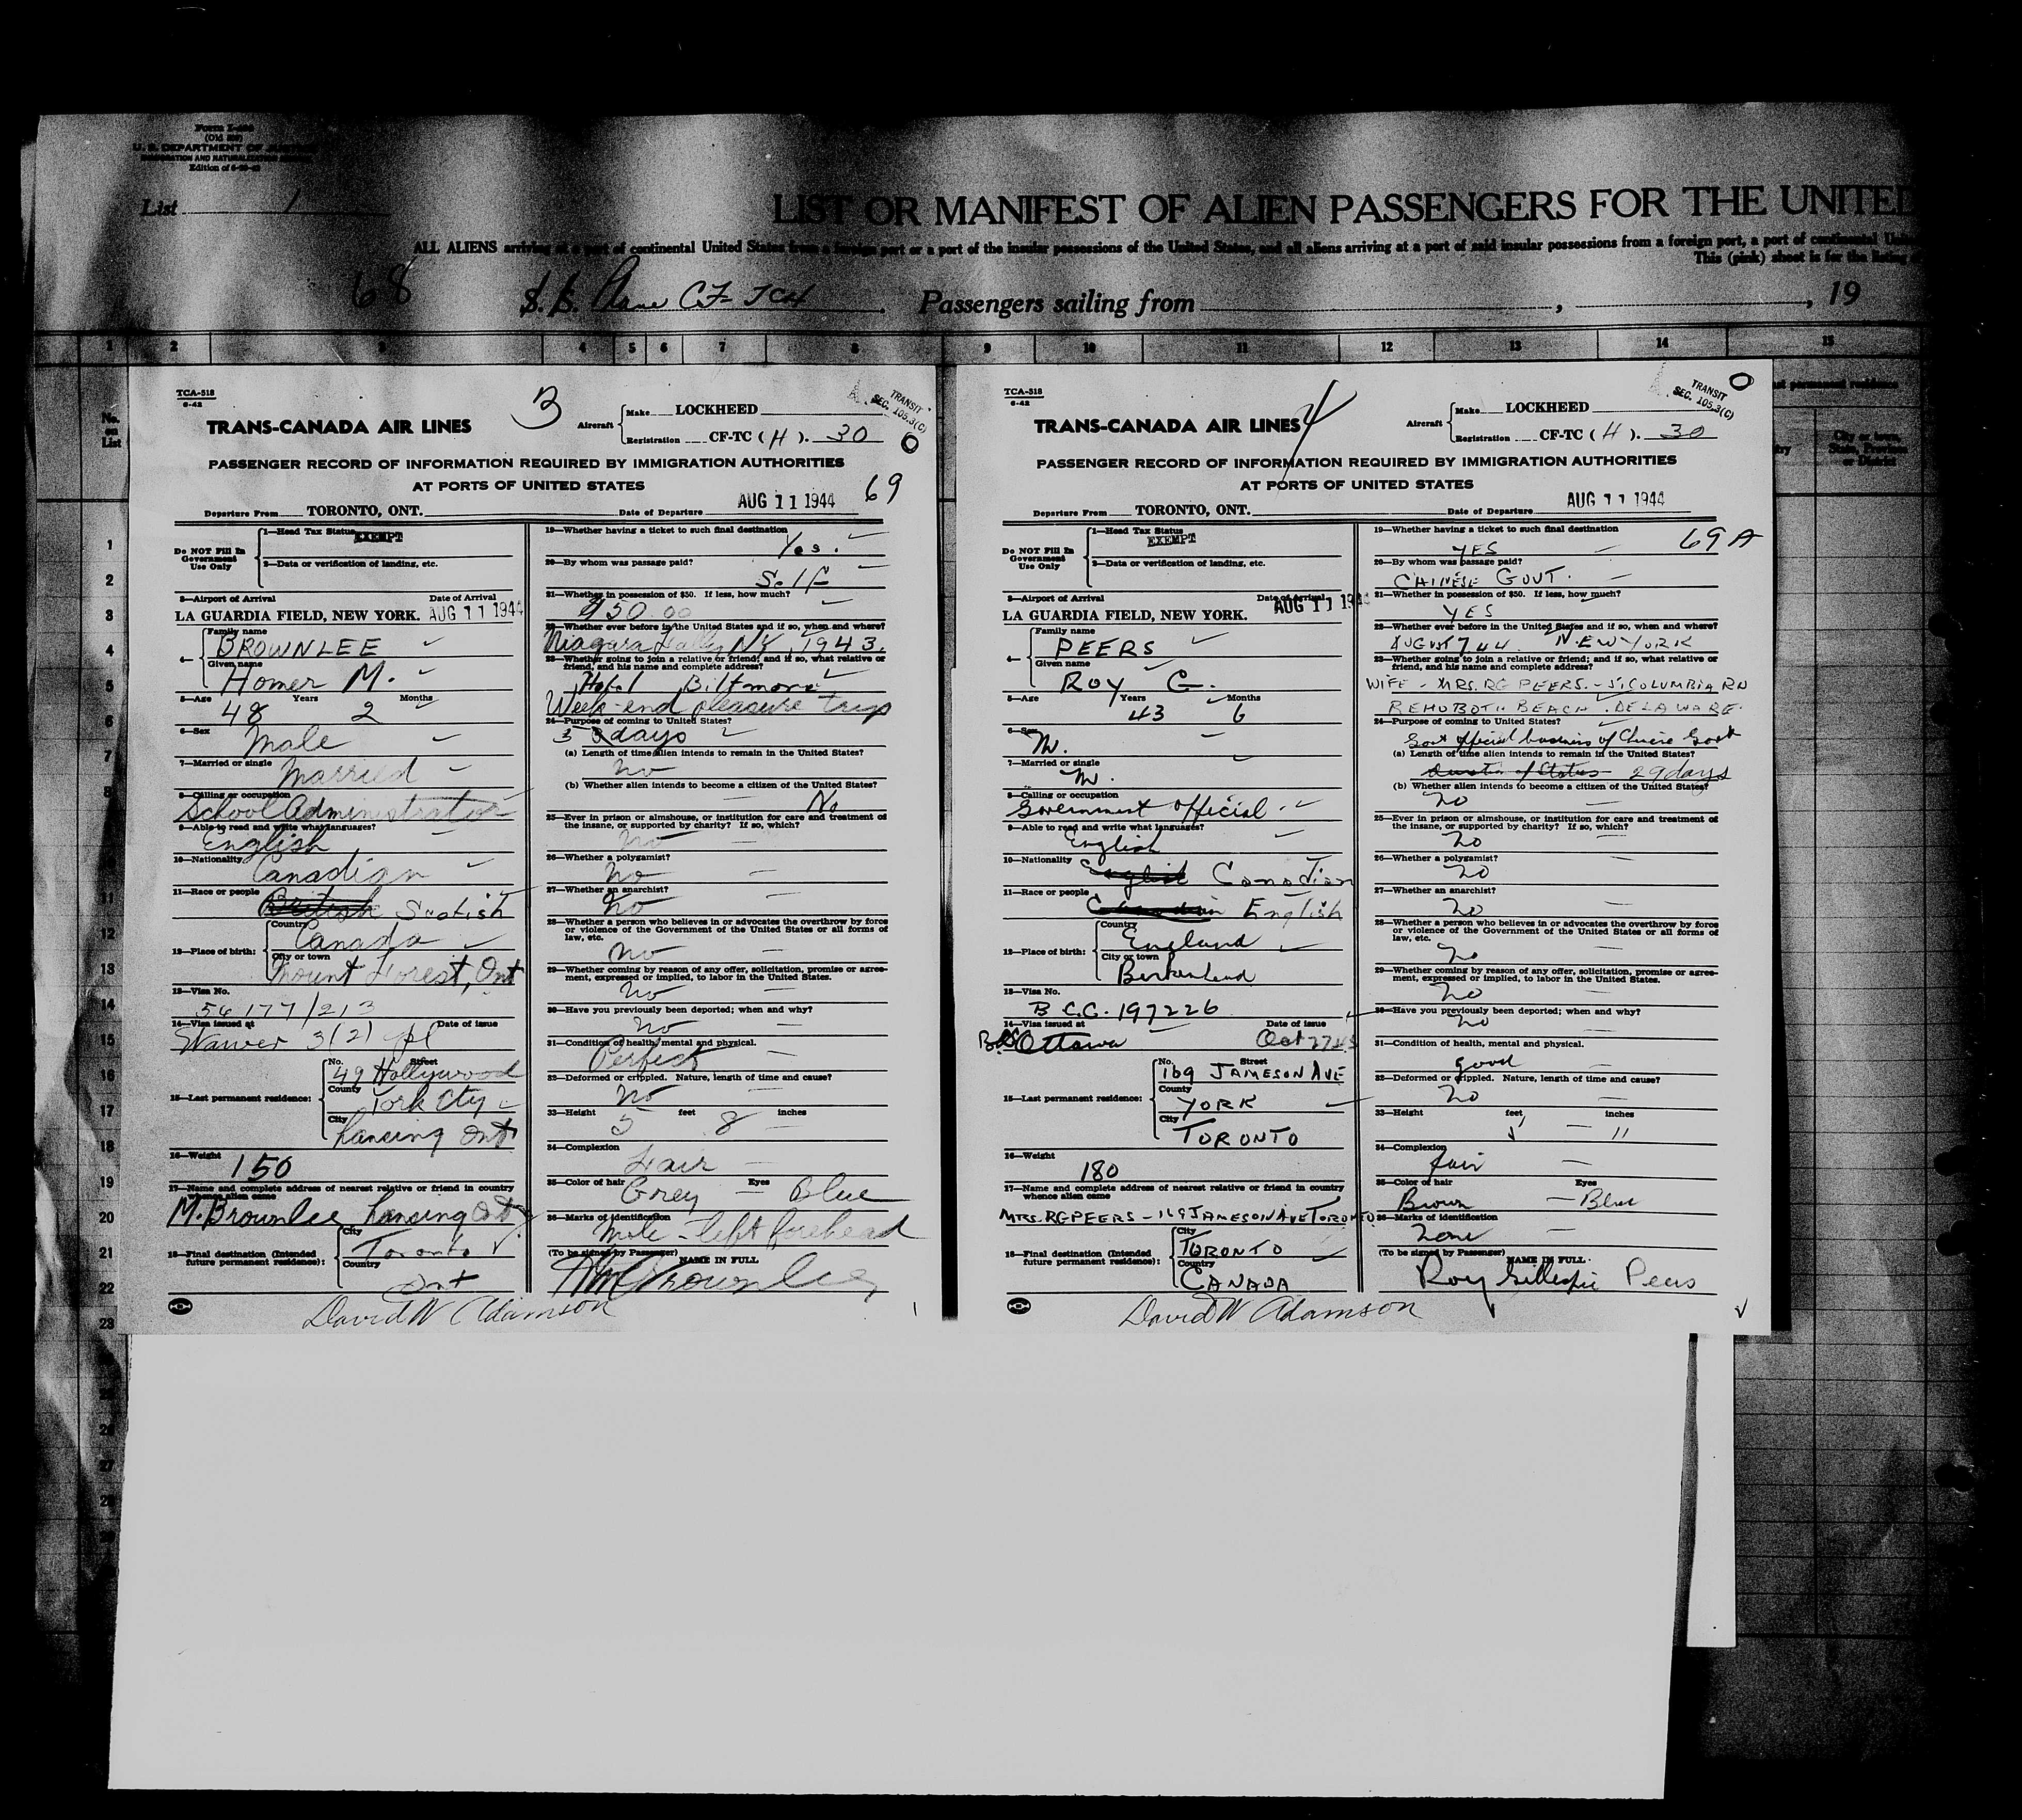 Form I-
(Old
U. S. DEPARTMENT OF JUSTICE
IMMIGRATION AND NATURALIZATION SERVICE
Edition of
List 1
LIST OR MANIFEST OF ALIEN PASSENGERS FOR THE UNITED
ALL ALIENS arriving at a port of continental United States from a foreign port or a port of the insular possessions of the United States, and all aliens arriving at a port of said insular possessions from a foreign port, a port of continental
This (pink) sheet is for the listing
68 S. S. Plane CF-TCH Passengers sailing from , , 19
1 2 3 4 5 6 7 8 9 10 11 12 13 14 15
No. on List
permanent residence
City or town, State, Province or District
TCA-518
6-42
3
TRANSIT
SEC. 105.3(C)
TRANS-CANADA AIR LINES
Aircraft Make LOCKHEED
Registration CF-TC (H). 30
PASSENGER RECORD OF INFORMATION REQUIRED BY IMMIGRATION AUTHORITIES
AT PORTS OF UNITED STATES
69
Departure From TORONTO, ONT. Date of Departure AUG 11 1944
Do NOT Fill In Government Use Only
1—Head Tax Status EXEMPT
2—Data or verification of landing, etc.
3—Airport of Arrival Date of Arrival
LA GUARDIA FIELD, NEW YORK. AUG 11 1944
4— Family name
BROWNLEE
Given name
Homer M.
5—Age Years Months
48 2
6—Sex
Male
7—Married or single
Married
8—Calling or occupation
School Administrator
9—Able to read and write what languages?
English
10—Nationality
Canadian
11—Race or people
British Scotish
12—Place of birth: Country
Canada
City or town
Mount Forest, Ont
13—Visa No.
56177/213
14—Visa issued at Date of issue
Waiver 3(2) pl
15—Last permanent residence: No. Street
49 Hollywood
County
York Cty
City
Lansing Ont
16—Weight
150
17—Name and complete address of nearest relative or friend in country whence alien came
M. Brownlee Lansing Ont
18—Final destination (Intended future permanent residence): City
Toronto
Country
Ont
David W Adamson
19—Whether having a ticket to such final destination
Yes.
20—By whom was passage paid?
Self
21—Whether in possession of $50. If less, how much?
$50.00
22—Whether ever before in the United States and if so, when and where?
Niagara Falls NY, 1943.
23—Whether going to join a relative or friend; and if so, what relative or
friend, and his name and complete address?
Hotel Biltmore
Week-end pleasure trip
24—Purpose of coming to United States?
3 days
(a) Length of time alien intends to remain in the United States?
No
(b) Whether alien intends to become a citizen of the United States?
No
25—Ever in prison or almshouse, or institution for care and treatment of
the insane, or supported by charity? If so, which?
No
26—Whether a polygamist?
No
27—Whether an anarchist?
No
28—Whether a person who believes in or advocates the overthrow by force
or violence of the Government of the United States or all forms of
law, etc.
No
29—Whether coming by reason of any offer, solicitation, promise or agree-
ment, expressed or implied, to labor in the United States.
No
30—Have you previously been deported; when and why?
No
31—Condition of health, mental and physical.
Perfect
32—Deformed or crippled. Nature, length of time and cause?
No
33—Height feet inches
5 8
34—Complexion
Fair
35—Color of hair Eyes
Grey — Blue
36—Marks of identification
Mole - left forehead
(To be signed by Passenger) NAME IN FULL
HM Brownlee
TCA-518
6-42
4
TRANSIT
SEC. 105.3(C)
TRANS-CANADA AIR LINES
Aircraft Make LOCKHEED
Registration CF-TC (H). 30
PASSENGER RECORD OF INFORMATION REQUIRED BY IMMIGRATION AUTHORITIES
AT PORTS OF UNITED STATES
Departure From TORONTO, ONT. Date of Departure AUG 11 1944
69 A
Do NOT Fill In Government Use Only
1—Head Tax Status
EXEMPT
2—Data or verification of landing, etc.
3—Airport of Arrival Date of Arrival
LA GUARDIA FIELD, NEW YORK. AUG 11 1944
4— Family name
PEERS
Given name
ROY G.
5—Age Years Months
43 6
6—Sex
M.
7—Married or single
M.
8—Calling or occupation
Government Official
9—Able to read and write what languages?
English
10—Nationality
English Canadian
11—Race or people
Canadian English
12—Place of birth: Country
England
City or town
Birkenhead
13—Visa No.
B.C.C. 197226
14—Visa issued at Date of issue
Ottawa Oct 27 43
15—Last permanent residence: No. Street
169 JAMESON AVE
County
YORK
City
TORONTO
16—Weight
180
17—Name and complete address of nearest relative or friend in country whence alien came
MRS. RG PEERS - 169 JAMESON AVE TORONTO
18—Final destination (Intended future permanent residence): City
TORONTO
Country
CANADA
David W Adamson
19—Whether having a ticket to such final destination
YES
20—By whom was passage paid?
CHINESE GOVT.
21—Whether in possession of $50. If less, how much?
YES
22—Whether ever before in the United States and if so, when and where?
AUGUST 7 44. NEW YORK
23—Whether going to join a relative or friend; and if so, what relative or
friend, and his name and complete address?
WIFE - MRS. RG PEERS. - 51 COLUMBIA RD
REHOBOTH BEACH. DELAWARE.
24—Purpose of coming to United States?
Govt official business of Chinese Govt
(a) Length of time alien intends to remain in the United States?
duration of Status 29 days
(b) Whether alien intends to become a citizen of the United States?
No
25—Ever in prison or almshouse, or institution for care and treatment of
the insane, or supported by charity? If so, which?
No
26—Whether a polygamist?
No
27—Whether an anarchist?
No
28—Whether a person who believes in or advocates the overthrow by force
or violence of the Government of the United States or all forms of
law, etc.
No
29—Whether coming by reason of any offer, solicitation, promise or agree-
ment, expressed or implied, to labor in the United States.
No
30—Have you previously been deported; when and why?
No
31—Condition of health, mental and physical.
good
32—Deformed or crippled. Nature, length of time and cause?
No
33—Height feet inches
5 — 11
34—Complexion
fair
35—Color of hair Eyes
Brown — Blue
36—Marks of identification
None
(To be signed by Passenger) NAME IN FULL
Roy Gillespie Peers